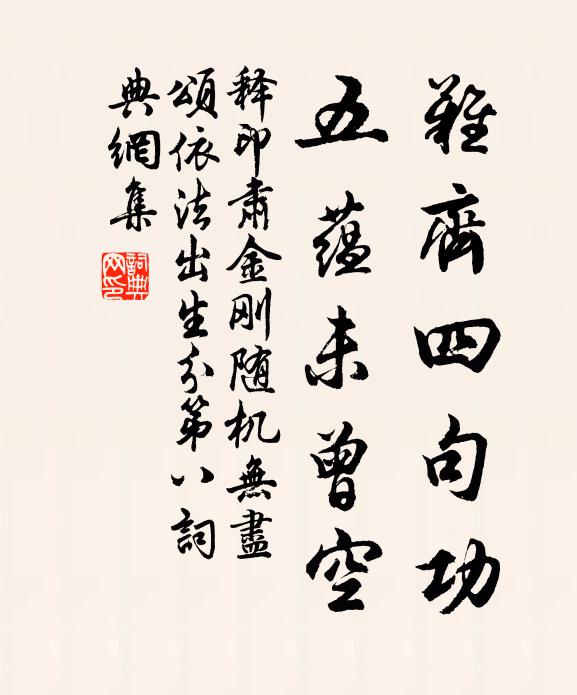 難齊四句功
五蘊未曾空
释印肅金刚随机無盡
頌依法出生分第八詞
典網集
詞典
网印